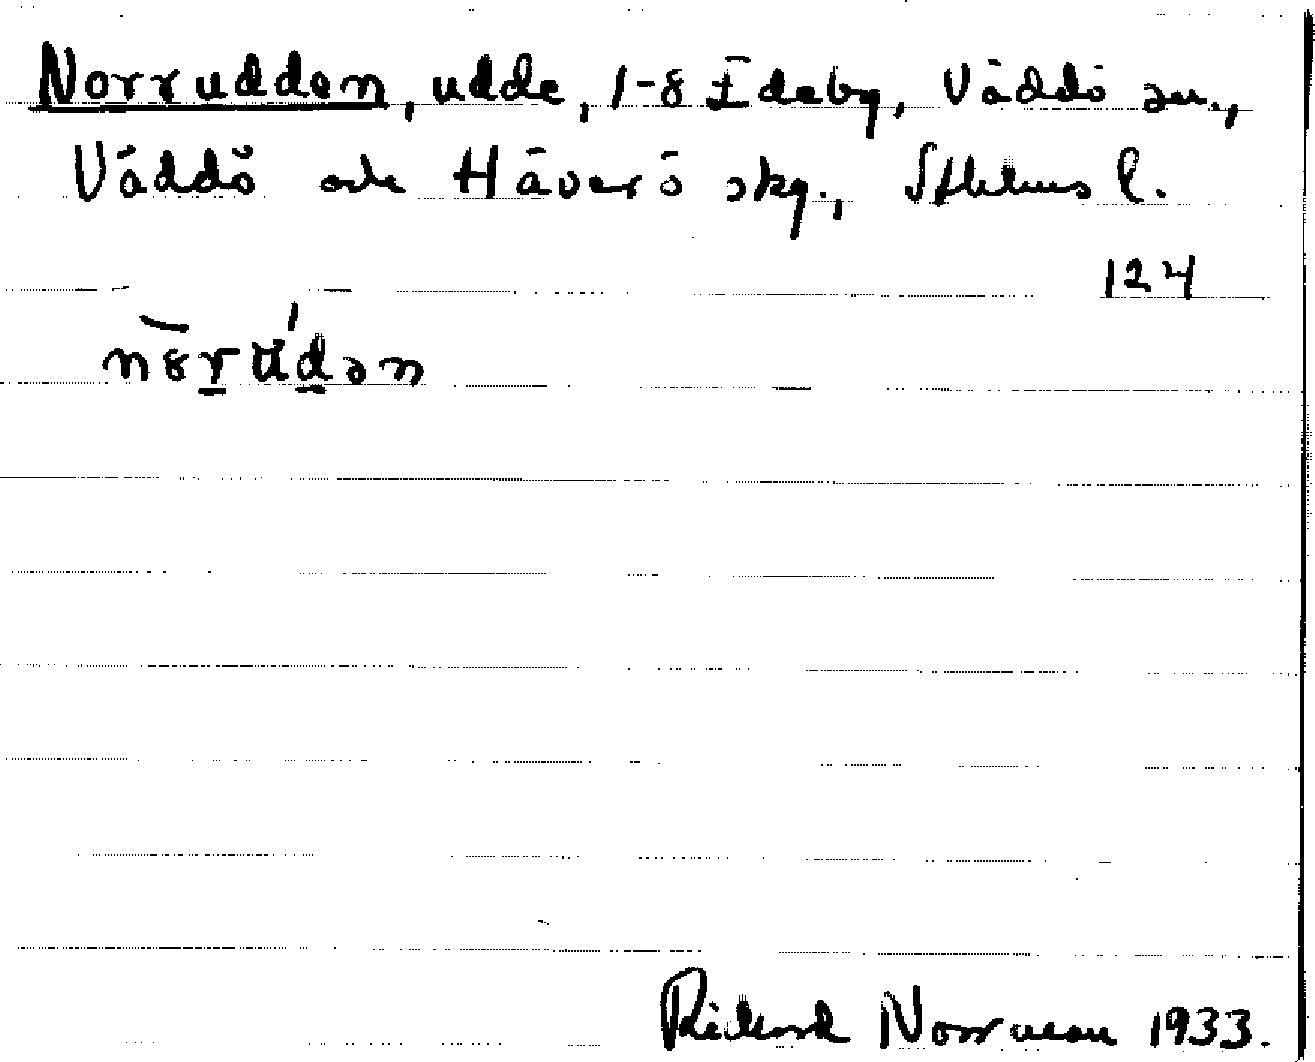 Norrudden, udde, 1-8 Edeby, Väddö sn.,
Väddö och Häverö skg., Sthlms l.
124
nərudən
Rickard Norrman 1933.